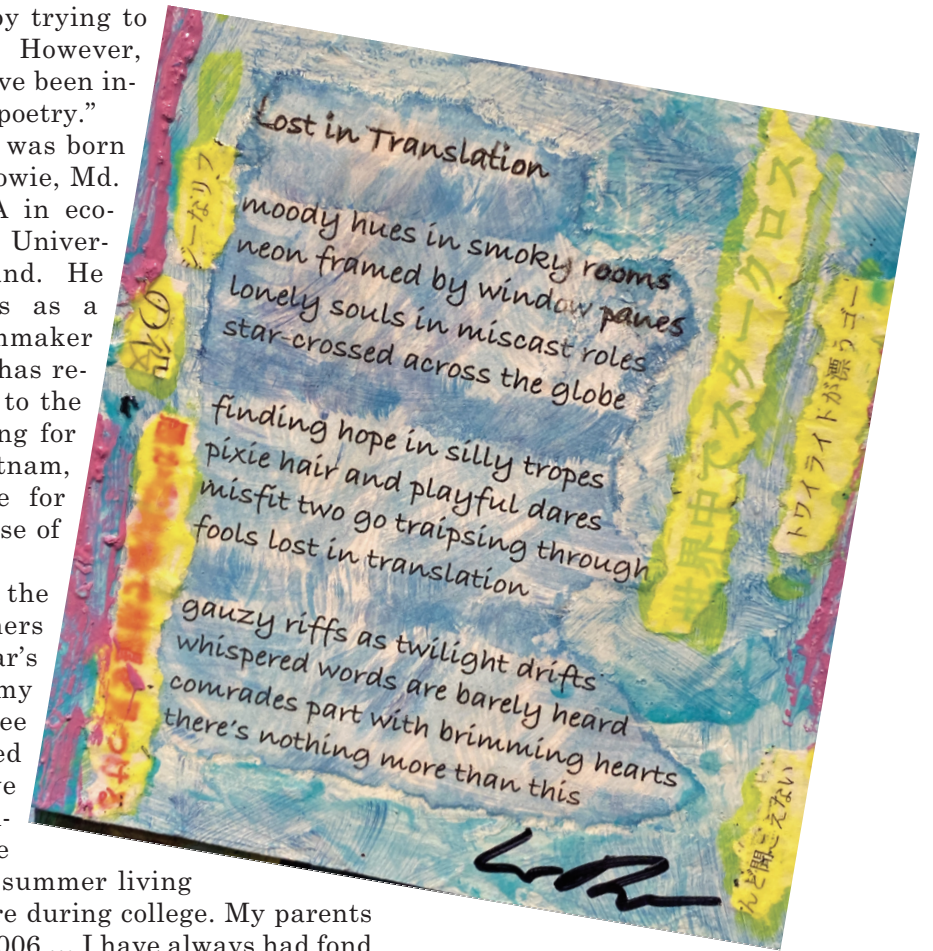 by trying to
However,
ve been in-
poetry."
was born
owie, Md.
A in eco-
Univer-
nd. He
s as a
nmaker
has re-
to the
ng for
tnam,
e for
se of
the
ners
ar's
my
ee
ed
ve
e
summer living
re during college. My parents
006 ... I have always had fond
Lost in Translation
moody hues in smoky rooms
neon framed by window panes
lonely souls in miscast roles
star-crossed across the globe
finding hope in silly tropes
pixie hair and playful dares
misfit two go traipsing through
fools lost in translation
gauzy riffs as twilight drifts
whispered words are barely heard
comrades part with brimming hearts
there's nothing more than this
ジーなリフ
の役
世界中でスタークロス
トワイライトが漂うゴー
んど聞こえない